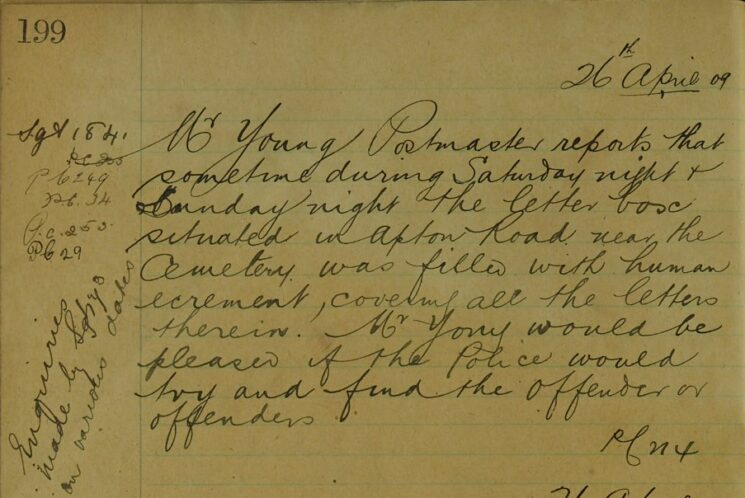 199
26th April 09
Mr Young Postmaster reports that
sometime during Saturday night &
Sunday night the letter box
situated in Apton Road near the
Cemetery was filled with human
ecrement, covering all the letters
therein. Mr Yong would be
pleased if the Police would
try and find the offender or
offenders
Sgt 184.
PC249
PC 34
P.c. 250
PC 29
Enquiries
made by
on various dates